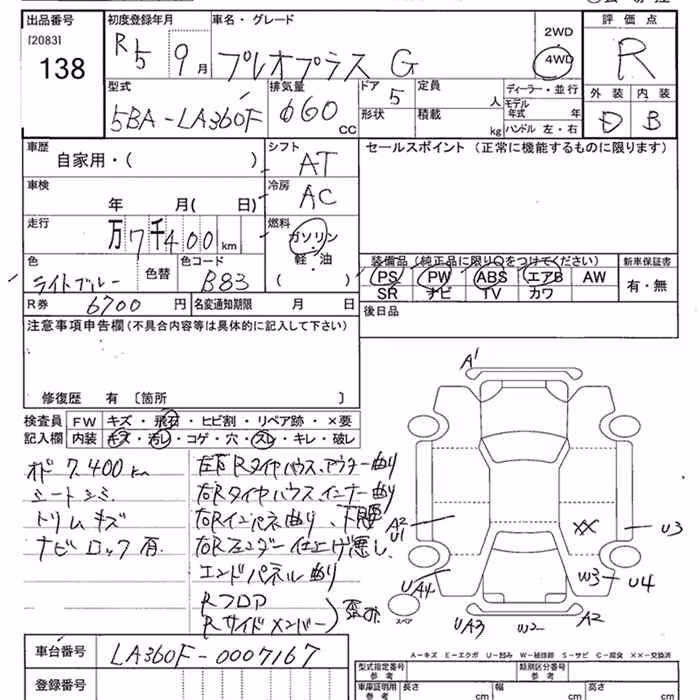 出品番号
[2083]
138
初度登録年月
R5 9月
車名・グレード
プレオプラス G
2WD
4WD
評価点
R
型式
5BA-LA360F
排気量
660 cc
ドア
5
形状
定員
人
積載
kg
ディーラー・並行
モデル年式 年
ハンドル 左・右
外装 内装
D B
車歴
自家用・( )
シフト
AT
セールスポイント (正常に機能するものに限ります)
車検
年 月( 日)
冷房
AC
走行
万7千400km
燃料
ガソリン
軽・油
( )
色
ライトブルー
色替
色コード
B83
装備品(純正品に限り○をつけてください)
PS PW ABS エアB AW
SR ナビ TV カワ
新車保証書
有・無
R券
6700円
名変通知期限 月 日
後日品
注意事項申告欄(不具合内容等は具体的に記入して下さい)
修復歴 有 〔箇所 〕
検査員
記入欄
FW キズ・飛石・ヒビ割・リペア跡・×要
内装 キズ・汚レ・コゲ・穴・スレ・キレ・破レ
オド 7,400km
シートシミ
トリムキズ
ナビロック有
右Rタイヤハウスインナー曲り
エンドパネル曲り
Rフロア
Rサイドメンバー
A1
A2
U1
UA4
UA3
W2
A2
XX
W3
U4
U3
スペア
A-キズ E-エクボ U-凹み W-補修跡 S-サビ C-腐食 XX-交換済
車台番号
LA360F-0007167
登録番号
型式指定番号
参考
類別区分番号
参考
車庫証明用
参考
長さ cm
幅 cm
高さ cm